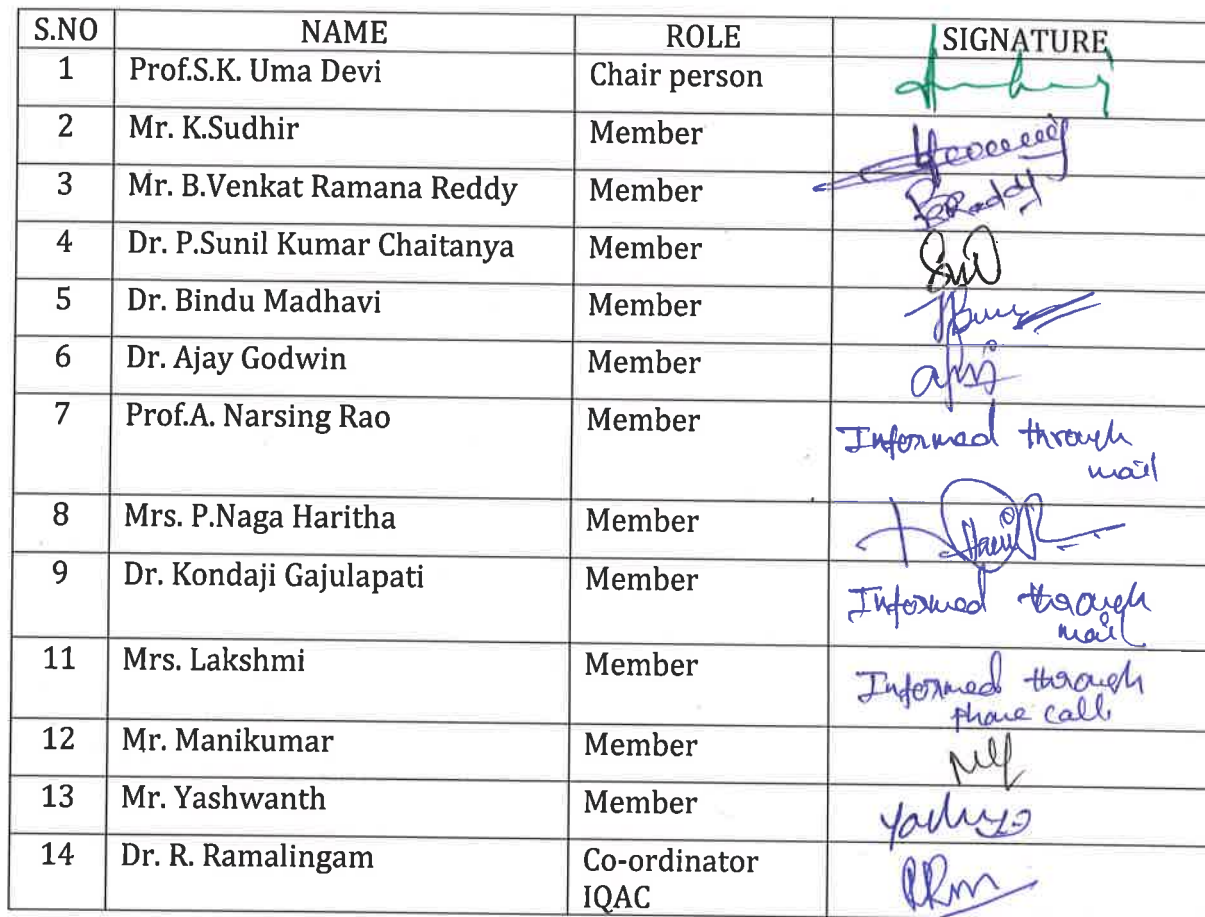 S.NO NAME ROLE SIGNATURE
1 Prof.S.K. Uma Devi Chair person
2 Mr. K.Sudhir Member
3 Mr. B.Venkat Ramana Reddy Member BReddy
4 Dr. P.Sunil Kumar Chaitanya Member
5 Dr. Bindu Madhavi Member
6 Dr. Ajay Godwin Member
7 Prof.A. Narsing Rao Member Informed through
mail
8 Mrs. P.Naga Haritha Member
9 Dr. Kondaji Gajulapati Member Informed through
mail
11 Mrs. Lakshmi Member Informed through
phone call
12 Mr. Manikumar Member
13 Mr. Yashwanth Member
14 Dr. R. Ramalingam Co-ordinator
IQAC